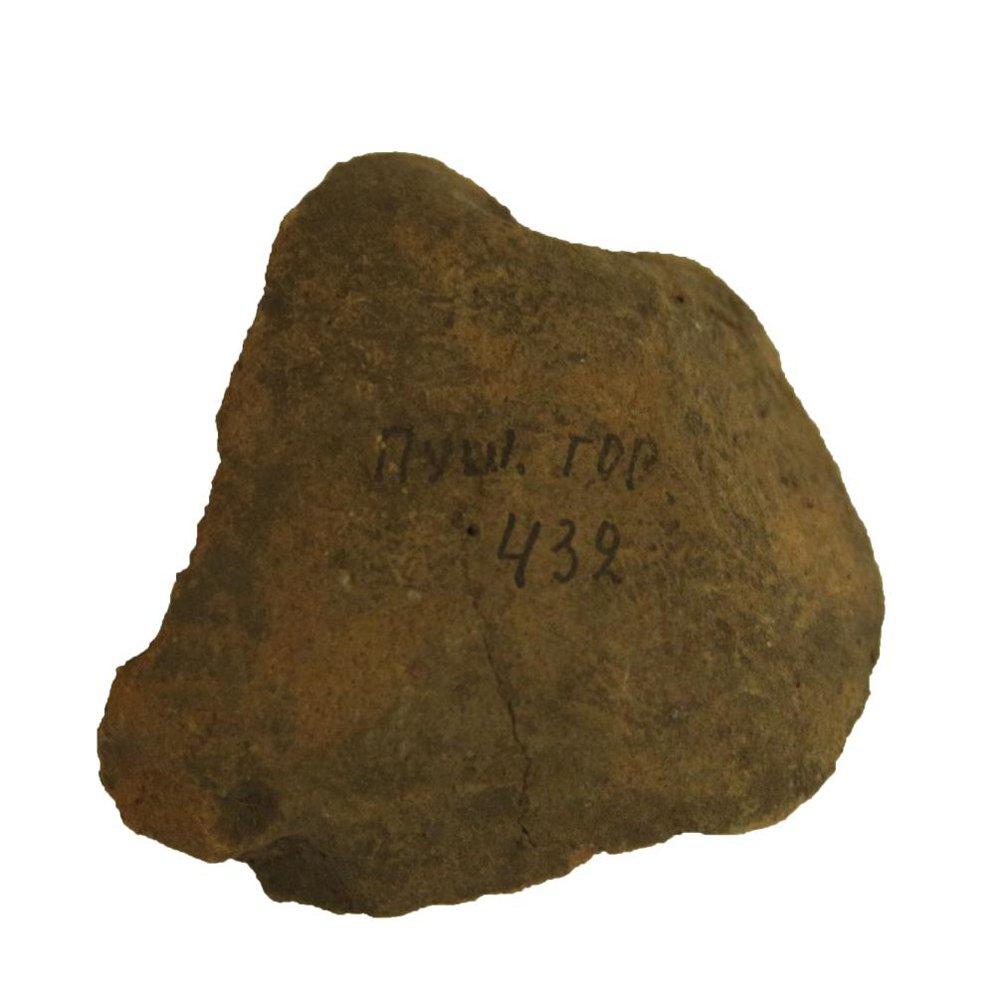 Пуш. гор.
432